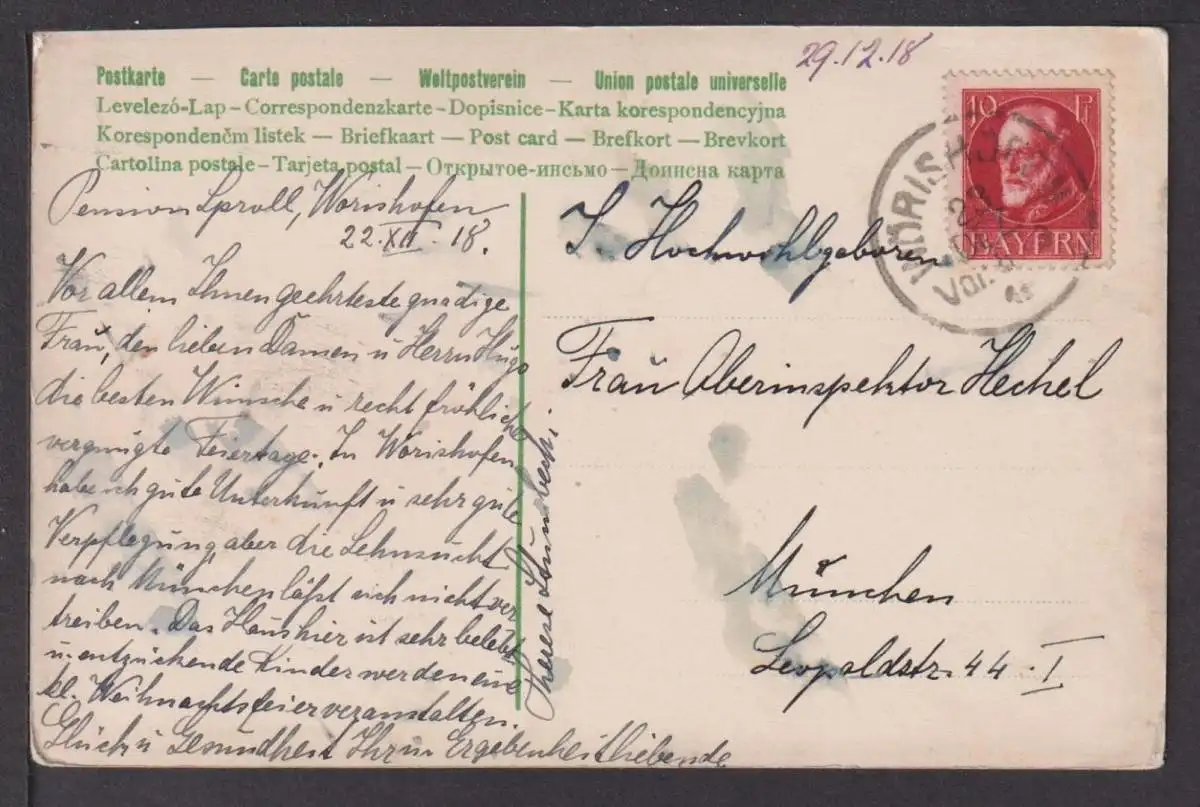 29.12.18
Postkarte — Carte postale — Weltpostverein — Union postale universelle
Levelezó-Lap – Correspondenzkarte – Dopisnice – Karta korespondencyjna
Korespondenčm listek — Briefkaart — Post card — Brefkort — Brevkort
Cartolina postale – Tarjeta postal – Открытое-инсьмо – Доинсна карта
10 Pf
BAYERN
WÖRISHOFEN
22
Vor.
Pension Sproll, Worishofen
22.XII.18.
Vor allem Ihnen geehrteste gnädige
Frau, den lieben Damen u Herrn Hugo
die besten Wünsche u recht fröhliche
vergnügte Feiertage. In Worishofen
habe ich gute Unterkunft u sehr gute
Verpflegung, aber die Sehnsucht
nach München läßt sich nicht ver
treiben. Das Haus hier ist sehr belebt
u. entzückende Kinder werden eine
kl. Weihnachtsfeier veranstalten.
Glück u Gesundheit Ihr in Ergebenheit liebende
Therese
S. Hochwohlgeboren
Frau Oberinspektor Hechel
München
Leopoldstr. 44 I